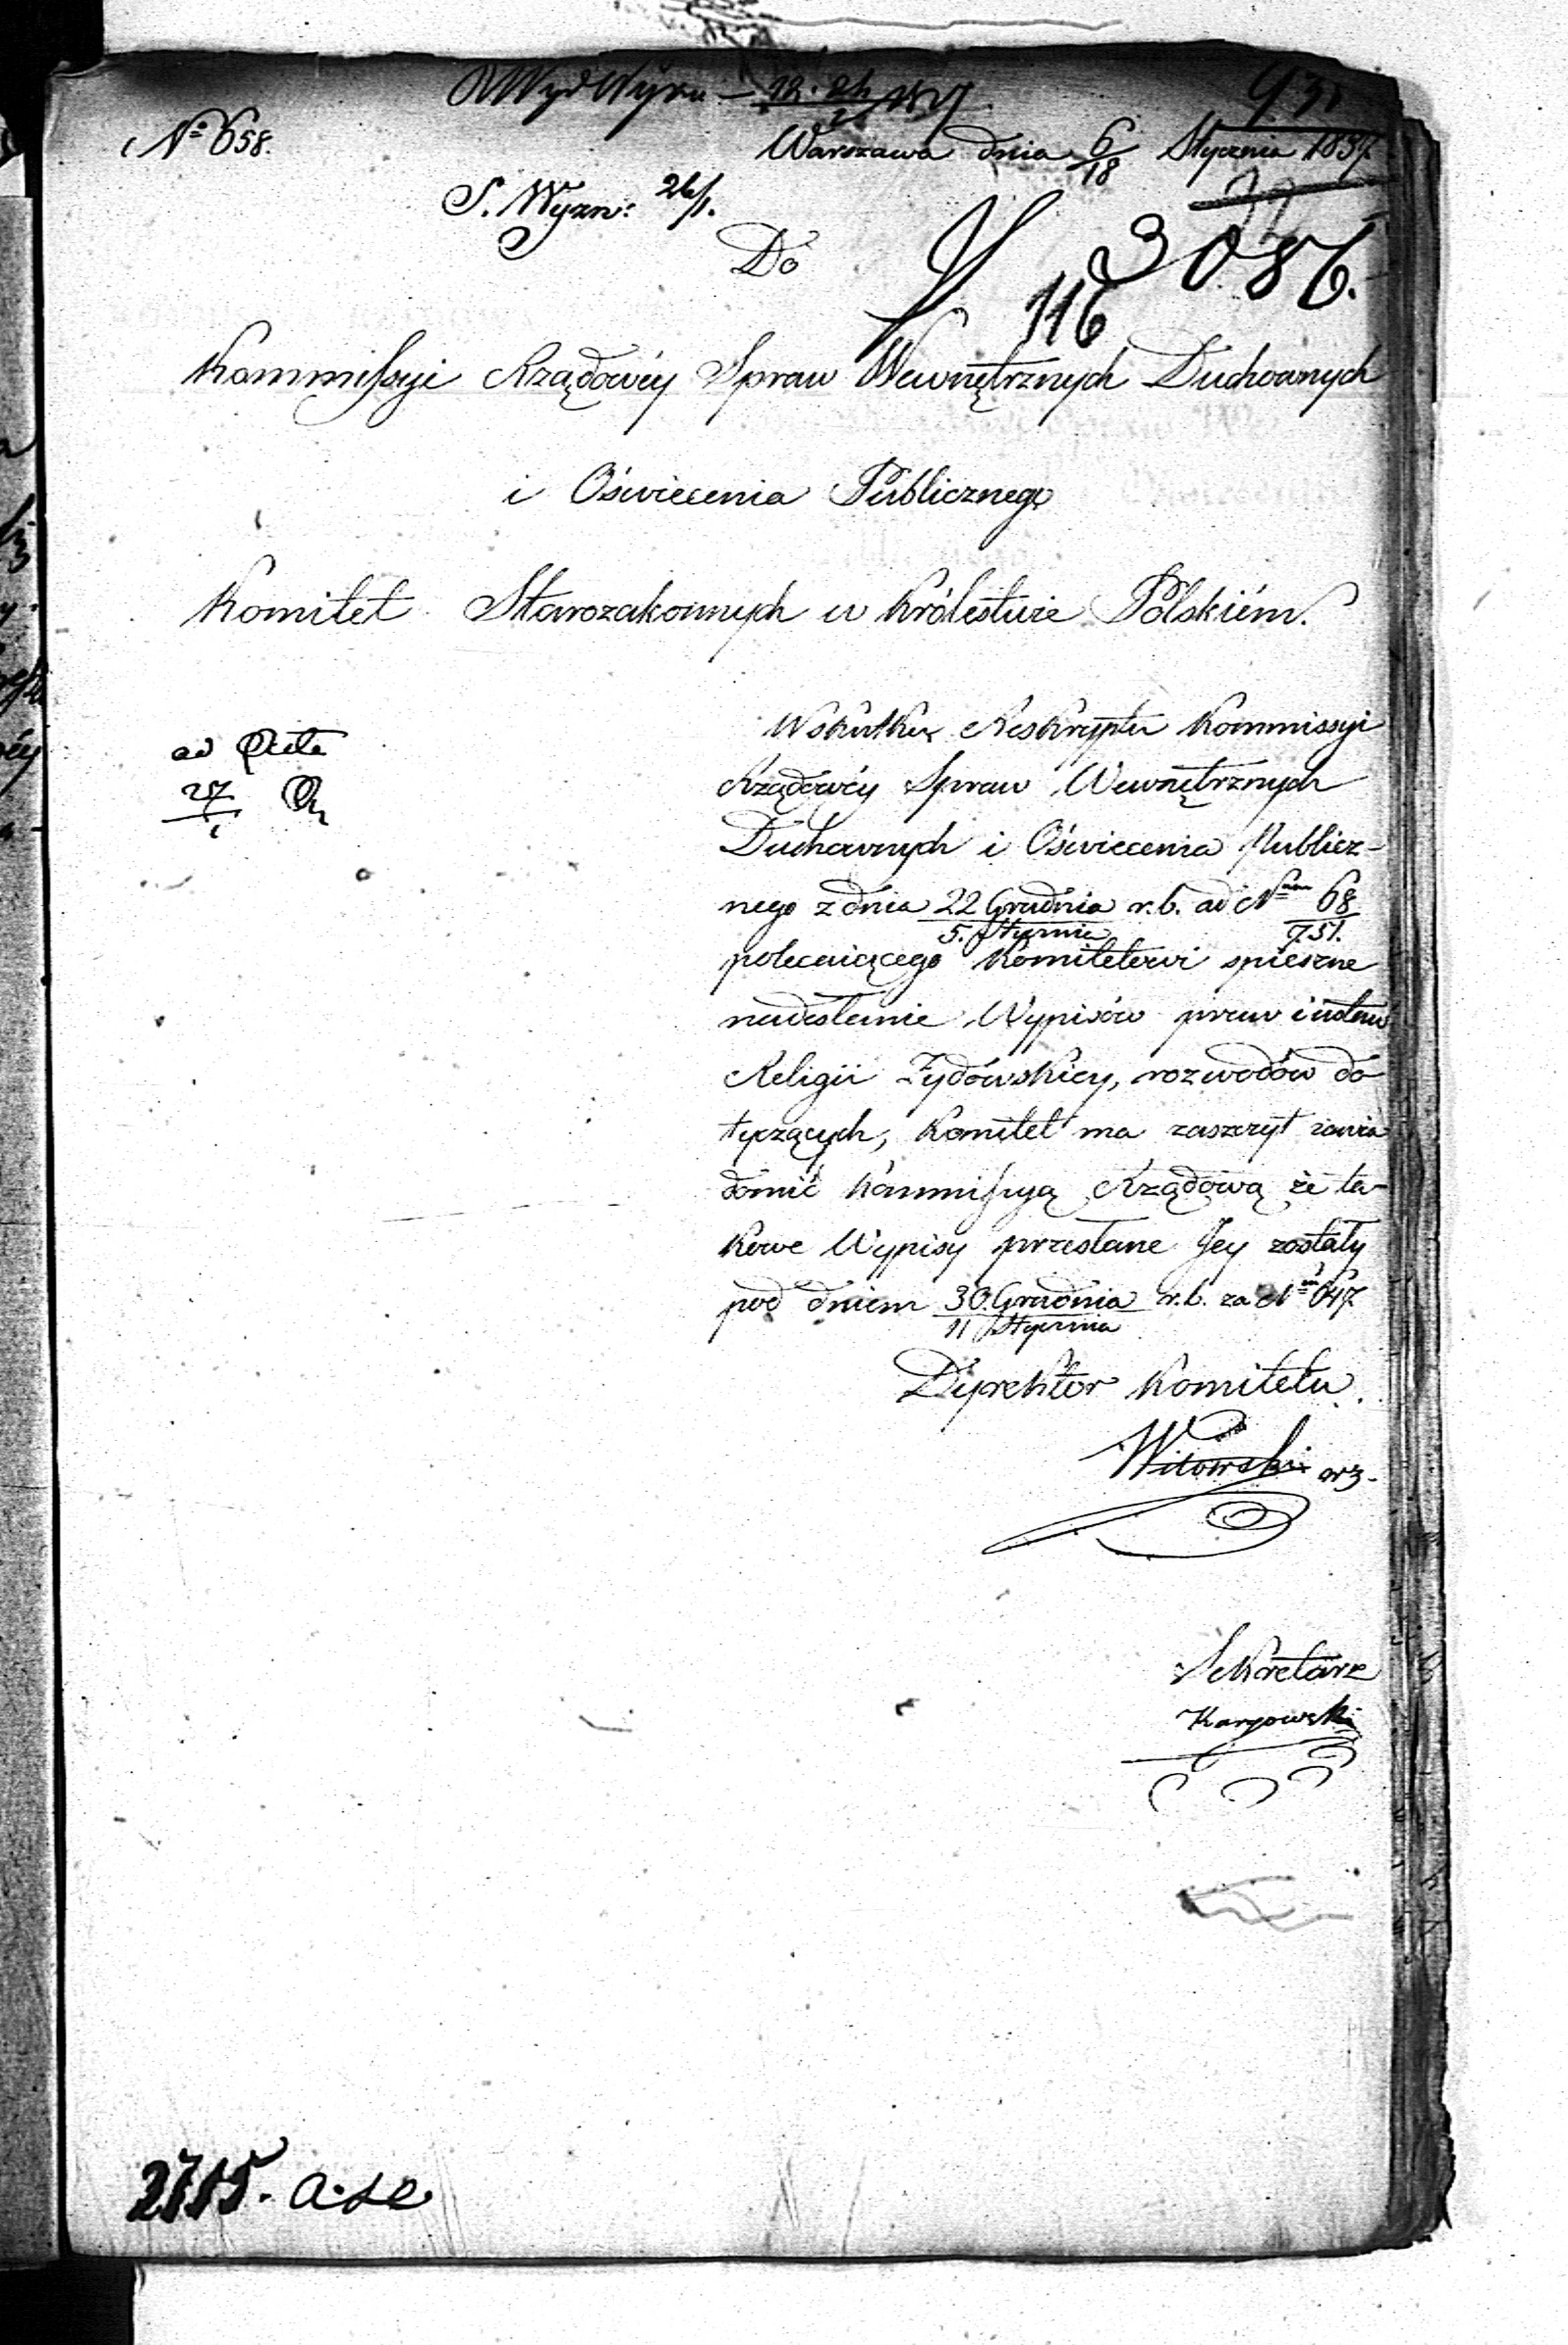 No 658.
Warszawa dnia 6/18 Stycznia 1837.
S. Wyzn: 26/1.
3086.
116
Do
Kommissyi Rządowéy Spraw Wewnętrznych Duchownych
i Oświecenia Publicznego
Komitet Starozakonnych w Królestwie Polskiém.
ad acta
27/1
Wskutku Reskryptu Kommissyi
Rządowéy Spraw Wewnętrznych
Duchownych i Oświecenia Publicz-
nego z dnia 22 Grudnia/5. Stycznia r. b. ad Num 68/751.
polecaiącego Komitetowi spieszne
nadesłanie Wypisów praw i ustaw
Religii Żydówskiey, rozwodów do
tyczących, Komitet ma zaszczyt zawia
domić Kommissyią Rządową że ta-
kowe Wypisy przesłane Jey zostały
pod dniem 30. Grudnia/11 Stycznia r. b. za Nm 647.
Dyrektor Komitetu.
Witowski wz.
Sekretarz
2715. a.